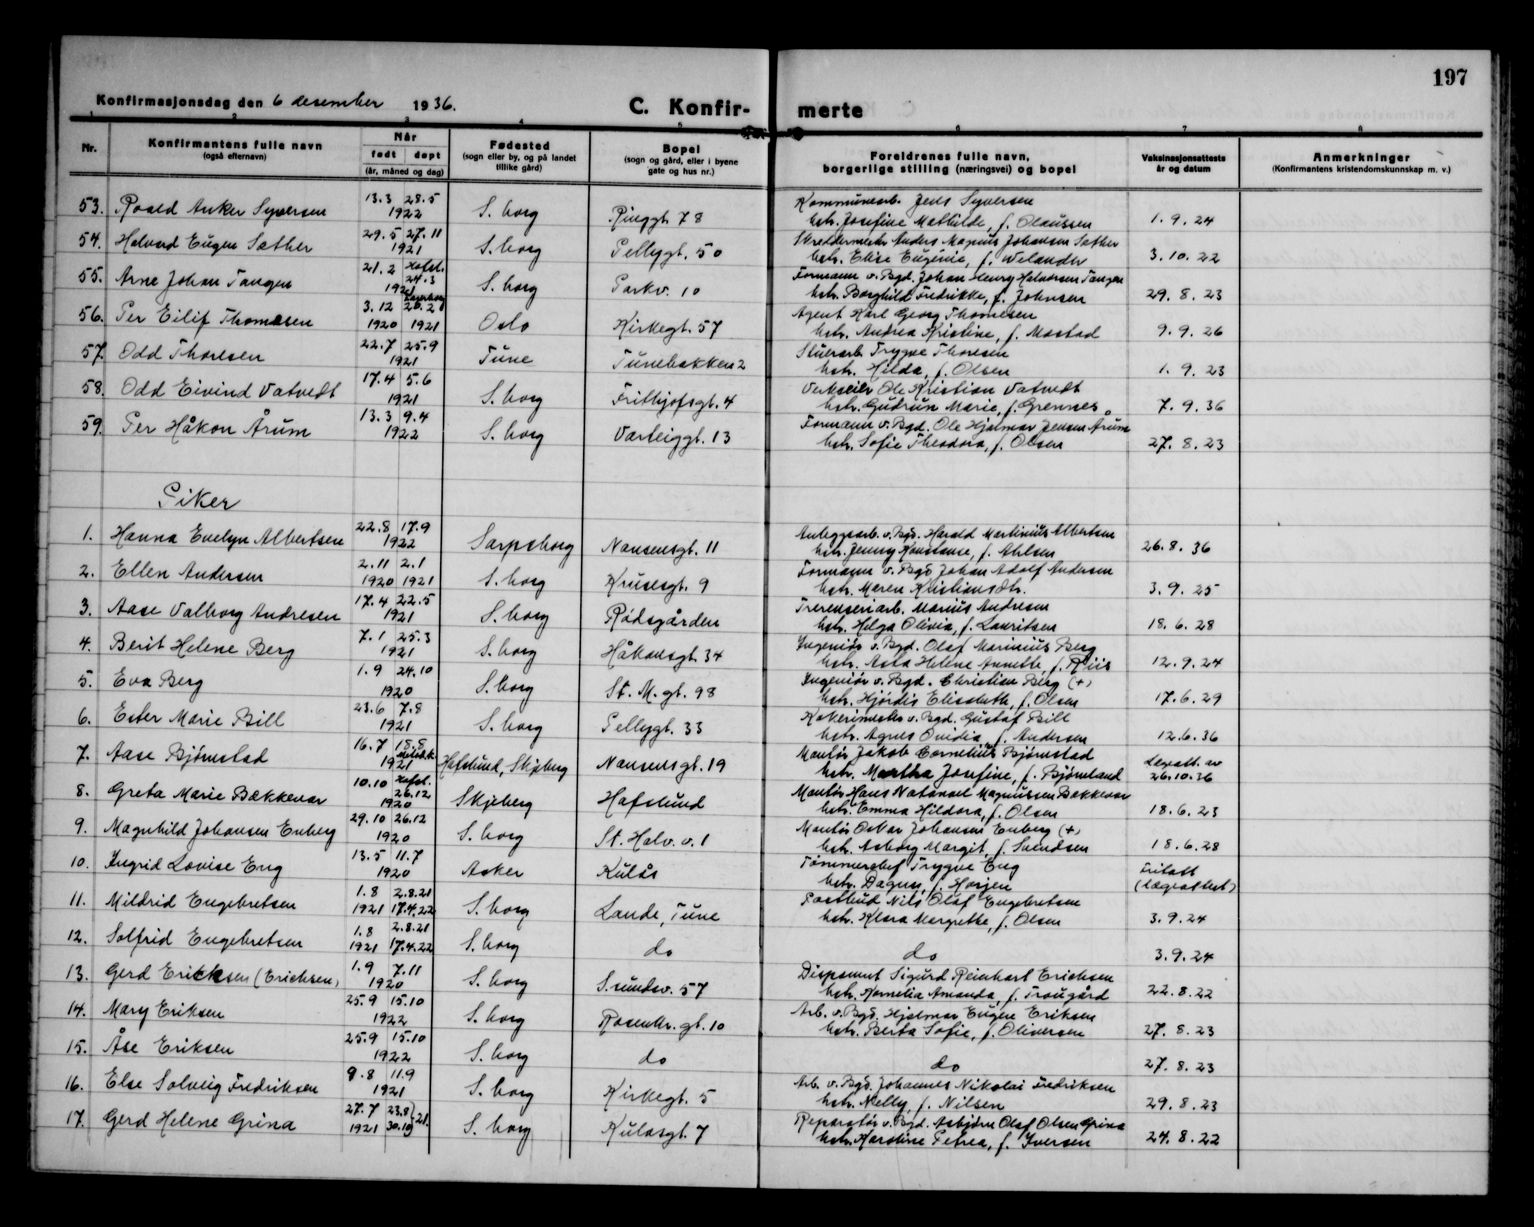 197
Konfirmasjonsdag den 6 desember 1936.
C. Konfir- merte
1 2 3 4 5 6 7 8
Nr. Konfirmantens fulle navn (også efternavn) Når født døpt (år, måned og dag) Fødested (sogn eller by, og på landet tillike gård) Bopel (sogn og gård, eller i byene gate og hus nr.) Foreldrenes fulle navn, borgerlige stilling (næringsvei) og bopel Vaksinasjonsattests år og datum Anmerkninger (Konfirmantens kristendomskunnskap m. v.)
53. Roald Anker Syversen 13.3 28.5 1922 S. borg Ringgt. 78 Kommunearb. Jens Syversen
hstr. Josefine Mathilde, f. Olaussen 1.9.24
54. Halvard Eugen Sæther 29.5 27.11 1921 S. borg Pellygt. 50 Skreddermester Anders Magnus Johansen Sæther
hstr. Elise Eugenie, f. Welander 3.10.22
55. Arne Johan Tangen 21.2 Hafsl. 24.3 1921 S. borg Parkv. 10 Formann v. Bgd. Johan Henry Halvorsen Tangen
hstr. Borghild Fredrikke, f. Johnsen 29.8.23
56. Per Eilif Thomesen 3.12 20.2 1920 1921 Oslo Kirkegt. 57 Agent Karl Georg Thomesen
hstr. Andrea Kristine, f. Mostad 9.9.26
57. Odd Thoresen 22.7 25.9 1921 Tune Tunebakken 2 Stuerarb. Trygve Thoresen
hstr. Hilda, f. Olsen 1.9.23
58. Odd Eivind Vatvedt 17.4 5.6 1921 S. borg Frithjofsgt. 4 Verkseier Ole Kristian Vatvedt
hstr. Gudrun Marie, f. Grennes 7.9.36
59. Per Håkon Årum 13.3 9.4 1922 S. borg Varteiggt. 13 Formann v. Bgd. Ole Hjalmar Jensen Årum
hstr. Sofie Theodora, f. Olsen 27.8.23
Piker
1. Hanna Evelyn Albertsen 22.8 17.9 1922 Sarpsborg Nansensgt. 11 Anleggsarb. v. Bgd. Harald Martinius Albertsen
hstr. Jenny Konstanse, f. Ahlsen 26.8.36
2. Ellen Andersen 2.11 2.1 1920 1921 S. borg Krusesgt. 9 Formann v. Bgd Johan Adolf Andersen
hstr. Maren Kristiansdtr. 3.9.25
3. Aase Valborg Andresen 17.4 22.5 1921 S. borg Rødsgården Marius Andresen
hstr. Helga Olivia, f. Lauritsen 18.6.28
4. Berit Helene Berg 7.1 25.3 1921 S. borg Håkonsgt. 34 Ingeniør v. Bgd. Olaf Marinius Berg
hstr. Asta Helene Annette, f. Riis 12.9.24
5. Eva Berg 1.9 24.10 1920 S. borg St. M. gt. 98 Ingeniør v. Bgd. Christian Berg (+)
hstr. Hjørdis Elisabeth, f. Olsen 17.6.29
6. Ester Marie Bill 23.6 7.8 1921 S. borg Pellygt. 33 Kokerimester v. Bgd. Gustaf Bill
hstr. Agnes Ovidia, f. Andersen 12.6.36
7. Aase Bjørnstad 16.7 18.8 1921 Hafslund, Skjeberg Nansensgt. 19 Montør Jakob Cornelius Bjørnstad
hstr. Martha Josefine, f. Bjørnland Lægeatt. av 26.10.36
8. Greta Marie Bækkevar 10.10 Hafsl. 26.12 1920 Skjeberg Hafslund Montør Hans Natanael Magnussen Bækkevar
hstr. Emma Hildora, f. Olsen 18.6.23
9. Magnhild Johansen Enberg 29.10 26.12 1920 S. borg St. Halv. v. 1 Montør Oskar Johansen Enberg (+)
hstr. Asborg Margit, f. Svendsen 18.6.28
10. Ingrid Lovise Eng 13.5 11.7 1920 Asker Kulås Tømmerchef Trygve Eng
hstr. Dagny, f. Horjen Fritatt (lægeattest)
11. Mildrid Engebretsen 1.8 2.8.21 1921 17.4.22 S. borg Lande, Tune Postbud Nils Olaf Engebretsen
hstr. Klara Margrethe, f. Olsen 3.9.24
12. Solfrid Engebretsen 1.8 2.8.21 1921 17.4.22 S. borg do do 3.9.24
13. Gerd Ericksen (Erichsen) 1.9 7.11 1920 S. borg S. sundsv. 57 Disponent Sigurd Reinhart Erichsen
hstr. Kornelia Amanda, f. Trougård 22.8.22
14. Mary Eriksen 25.9 15.10 1922 S. borg Rosenkr. gt. 10 Arb. v. Bgd. Hjalmar Eugen Eriksen
hstr. Berta Sofie, f. Oliversen 27.8.23
15. Åse Eriksen 25.9 15.10 1922 S. borg do do 27.8.23
16. Else Solveig Fredriksen 9.8 11.9 1921 S. borg Kirkegt. 5 Arb. v. Bgd. Johannes Nikolai Fredriksen
hstr. Nelly, f. Nilsen 29.8.23
17. Gerd Helene Grina 27.7 23.8 1921 30.10 21. S. borg Kulåsgt. 7 Reparatør v. Bgd. Asbjørn Olaf Olsen Grina
hstr. Karoline Petrea, f. Iversen 24.8.22